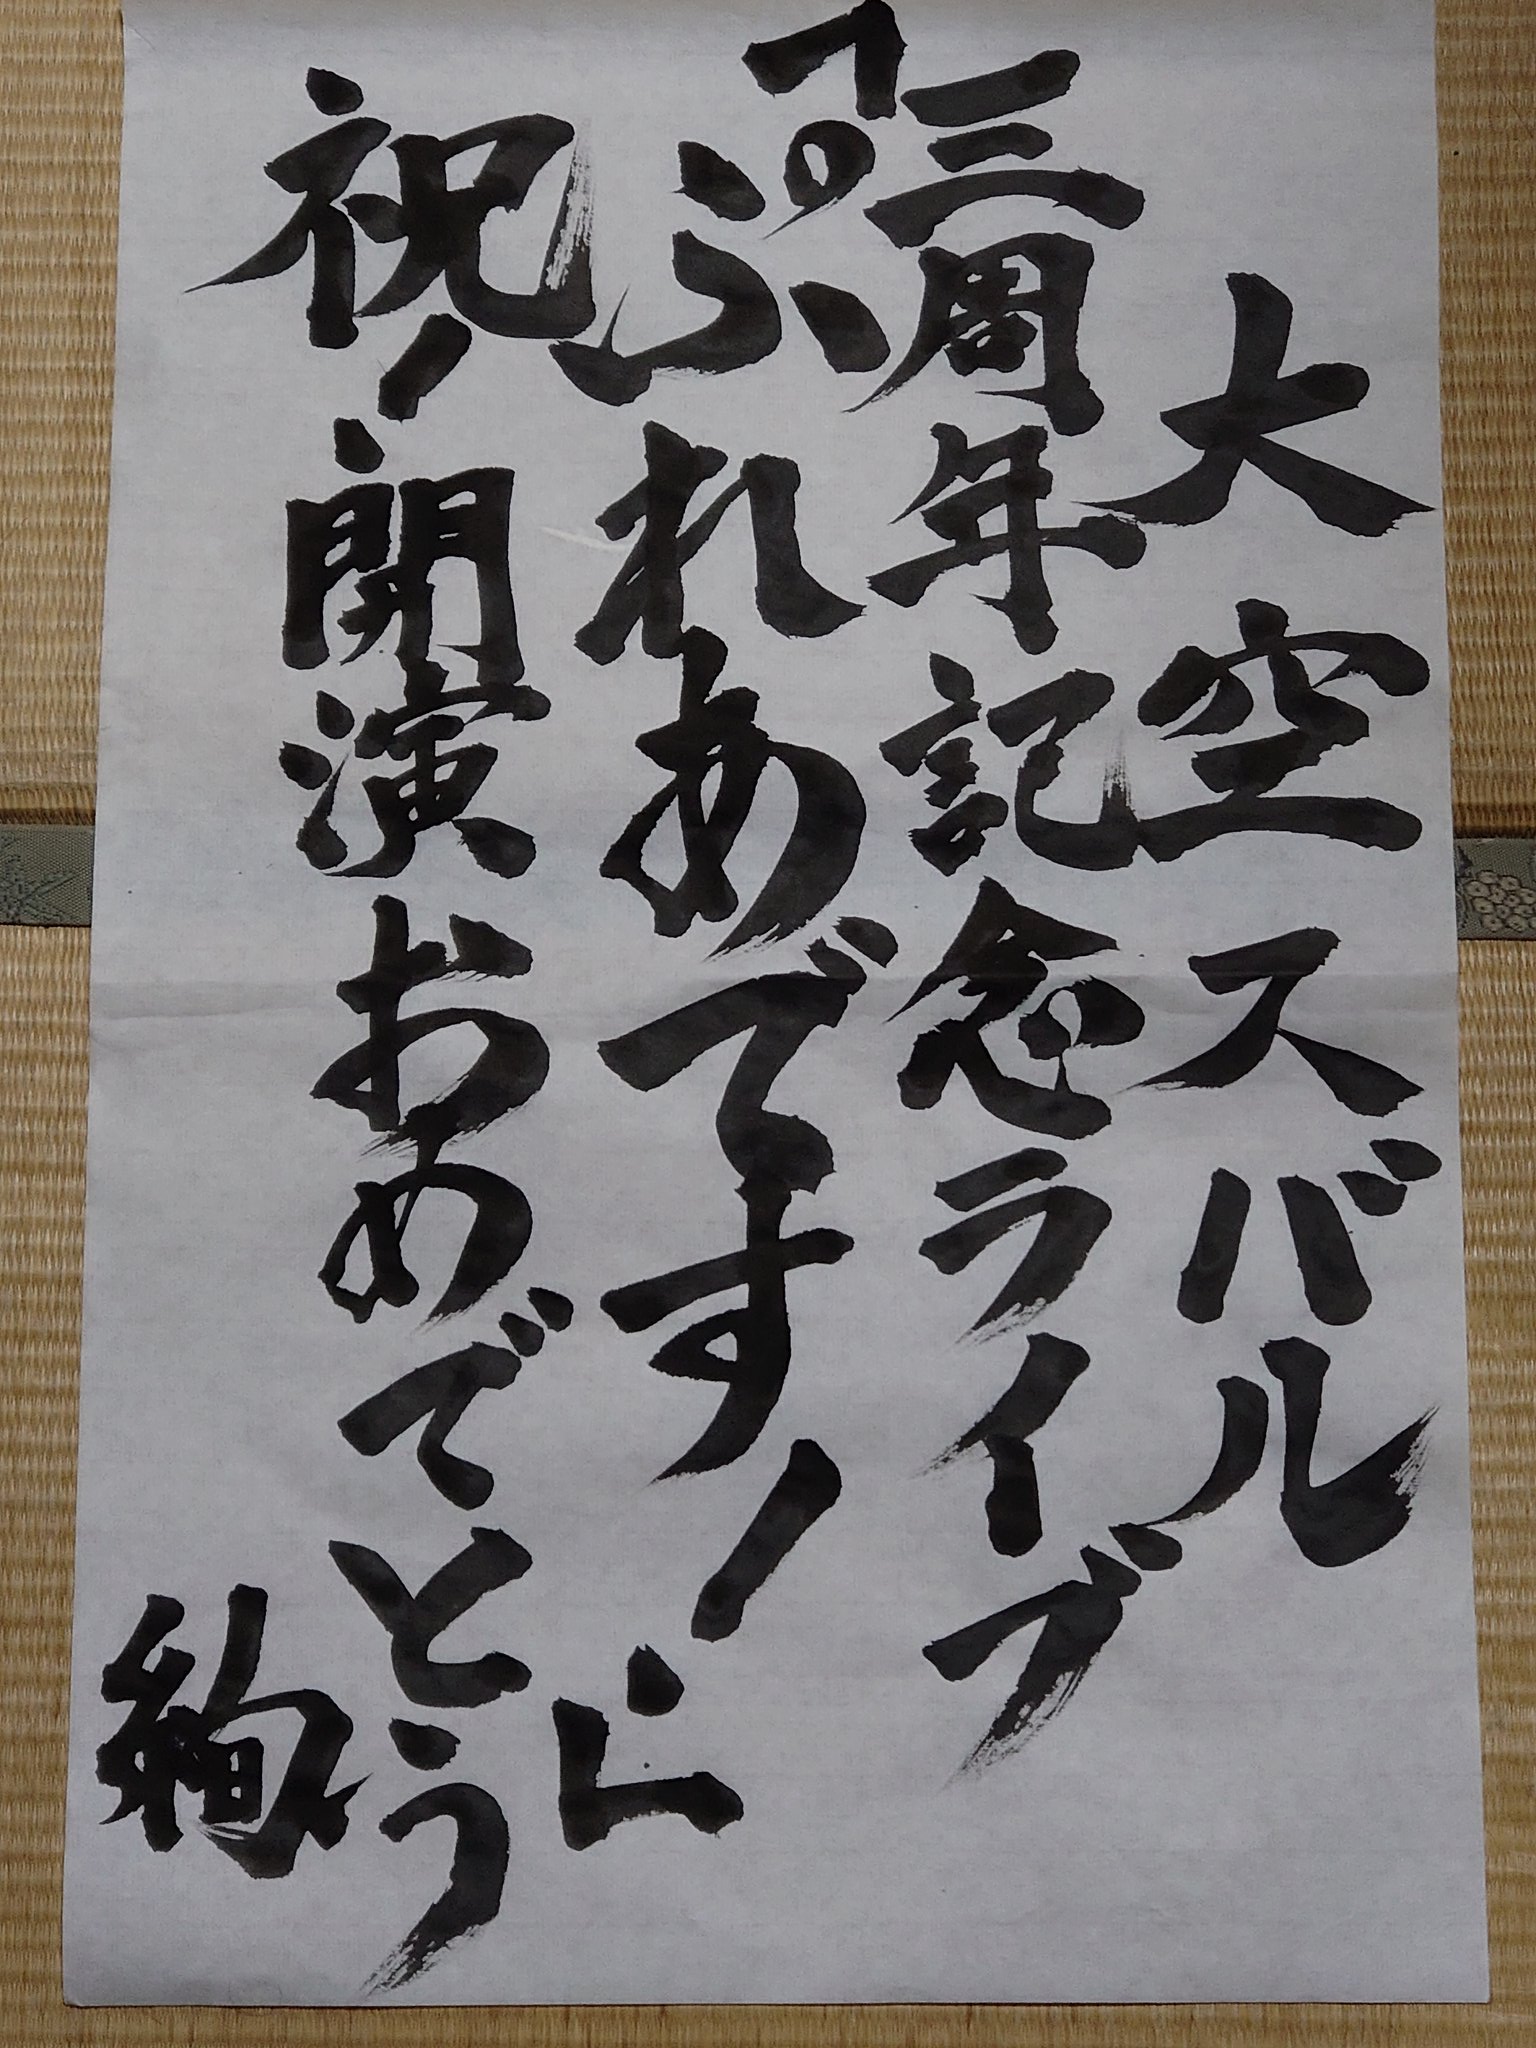 大空スバル
三周年記念ライブ
「ぷれあです！」
祝！開演おめでとう
絢